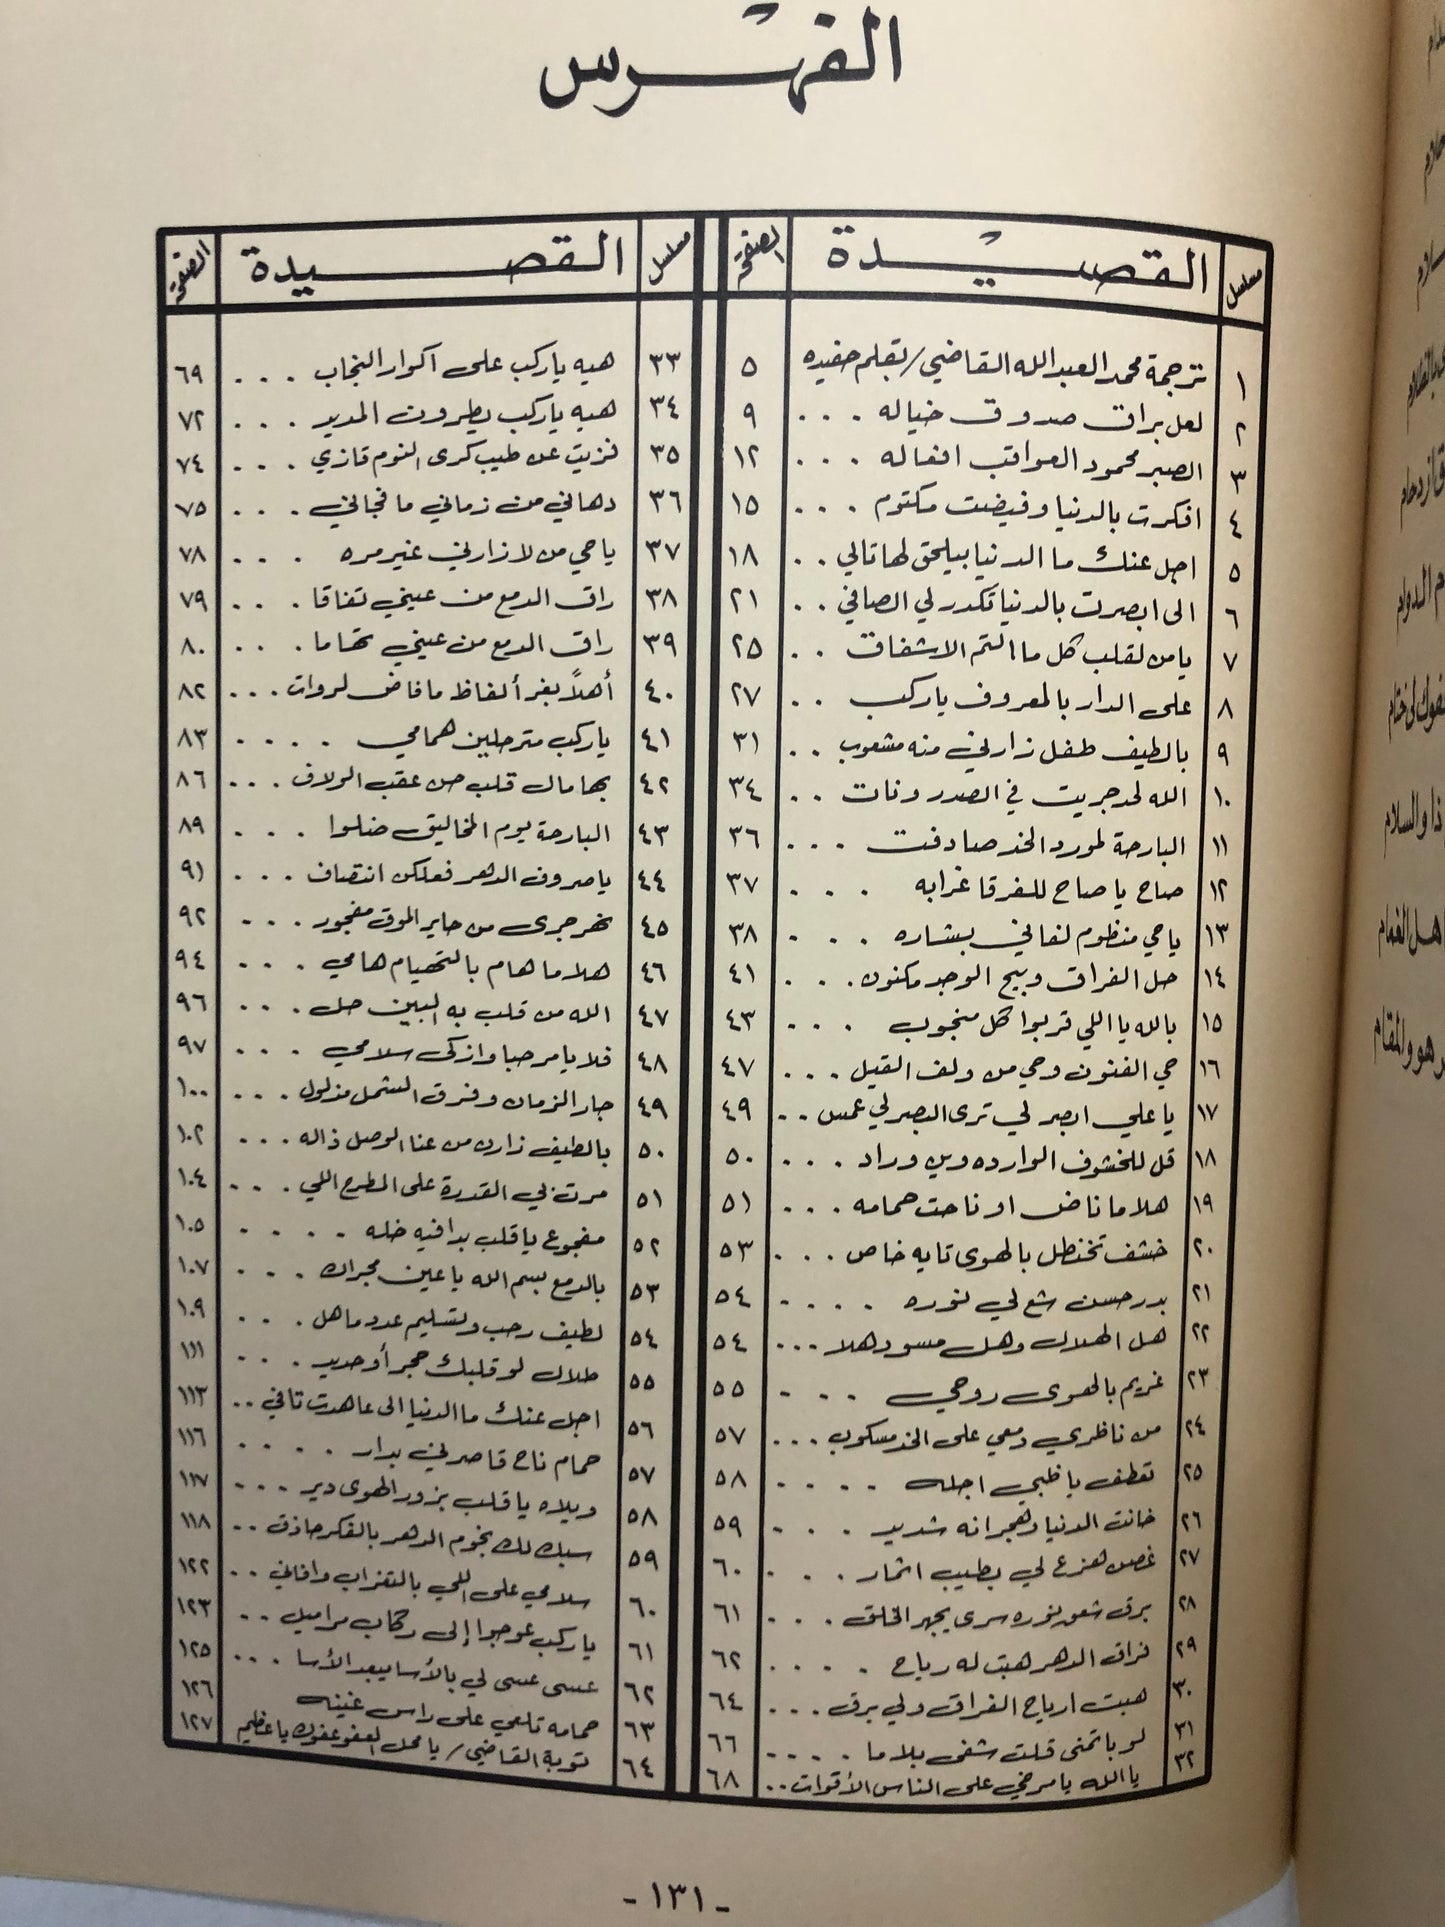 الفهرس
مسلسل القصيدة الصفحة
١ ترجمة محمد العبدالله القاضي/ بقلم حفيده ٥
٢ لعل براق صدوق خياله . . . ٩
٣ الصبر محمود العواقب افعاله . . . ١٢
٤ افكرت بالدنيا وفيضت مكتوم . . . ١٥
٥ اجل عنك ما الدنيا بيلحق لها تالي . . ١٨
٦ الى ابصرت بالدنيا تكدر لي الصافي . . ٢١
٧ يا من لقلب كل ما التم الاشفاق . . ٢٥
٨ على الدار بالمعروف ياركب . . ٢٧
٩ بالطيف طفل زارني منه مشعوب . . ٣١
١٠ الله لحد جريت في الصدر ونات . . ٣٤
١١ البارحة لمورد الخد صادفت . . . ٣٦
١٢ صاح يا صاح للفرقا غرابه . . . ٣٧
١٣ يا حي منظوم لفاني بشاره . . . ٣٨
١٤ حل الفراق وبيح الوجد مكنون . . . ٤١
١٥ بالله يا اللي قربوا كل منجوب . . . ٤٣
١٦ حي الفنون وحي من ولف القيل . . . ٤٧
١٧ يا علي ابصر لي ترى البصر لي عمس . . ٤٩
١٨ قل للخشوف الوارده وين وراد . . . ٥٠
١٩ هلا ما ناض او ناحت حمامه . . . ٥١
٢٠ خشف تخنطل بالهوى تايه خاص . . . ٥٣
٢١ بدر حسن شع لي نوره . . . . ٥٤
٢٢ هل الهلال وهل مسود هلا . . . ٥٤
٢٣ غريم بالهوى روحي . . . ٥٥
٢٤ من ناظري دمعي على الخد مسكوب . . . ٥٧
٢٥ تعطف يا ظبي اجله . . . . ٥٨
٢٦ خانت الدنيا وهجرانه شديد . . . ٥٩
٢٧ غصن هزع لي بطيب اثمار . . . ٦٠
٢٨ برق شعق نوره سرى يجهر الخلق . . . ٦١
٢٩ فراق الدهر هبت له رياح . . . . ٦٢
٣٠ هبت ارياح الفراق ولي برق . . . ٦٤
٣١ لو باتمنى قلت شفى بلا ما . . . . ٦٦
٣٢ يا الله يا مرخي على الناس الأقوات . . ٦٨
مسلسل القصيدة الصفحة
٣٣ هيه ياركب على اكوار النجاب . . . ٦٩
٣٤ هيه ياركب يطرون المدير . . . ٧٢
٣٥ فزيت عن طيب كرى النوم قازي . . . ٧٤
٣٦ دهاني من زماني ما فجاني . . . ٧٥
٣٧ يا حي من لا زارني غير مره . . . ٧٨
٣٨ راق الدمع من عيني تفاقا . . . ٧٩
٣٩ راق الدمع من عيني تهاما . . . ٨٠
٤٠ أهلاً بغر ألفاظ ما فاض لروات . . . ٨٢
٤١ ياركب مترحلين همامي . . . . ٨٣
٤٢ بها مال قلب حل عقب الولاف . . . ٨٦
٤٣ البارحة يوم المخاليق ضلوا . . . ٨٩
٤٤ يا صروف الدهر فعلكن انتصاف . . . ٩١
٤٥ نهر جرى من حاير الموق مفجور . . . ٩٢
٤٦ هلا ما هام بالتهيام هامي . . . ٩٤
٤٧ الله من قلب به البين حل . . . ٩٦
٤٨ فلا يا مرحبا وازكى سلامي . . . ٩٧
٤٩ جار الزمان وفرق الشمل مزلول . . . ١٠٠
٥٠ بالطيف زارن من عنا الوصل ذاله . . . ١٠٢
٥١ مرت بي القدرة على المطرح اللي . . . ١٠٤
٥٢ مفجوع يا قلب بدا فيه خله . . . . ١٠٥
٥٣ بالدمع بسم الله يا عين مجراك . . . ١٠٧
٥٤ لطيف رحب وتسليم عدد ما هل . . . ١٠٩
٥٥ طلال لو قلبك حجر أو حديد . . . ١١١
٥٦ اجل عنك ما الدنيا الى عاهدت تافي . . ١١٣
٥٧ حمام ناح قاصرني بدار . . . . ١١٦
٥٨ ويلاه يا قلب بزور الهوى دير . . . ١١٧
٥٩ سبك لك نجوم الدهر بالفكر حاذق . . ١١٨
٦٠ سلامي على اللي بالتغراب وافاني . . ١٢٢
٦١ ياركب عوجوا إلى ركاب مراميل . . ١٢٣
٦٢ عسى عسى لي بالأسا يبعد الأسا . . . ١٢٥
٦٣ حمامه تلعي على راس غينه ١٢٦
٦٤ توبة القاضي/ يا محل العفو عفوك يا عظيم ١٢٧
- ١٣١ -